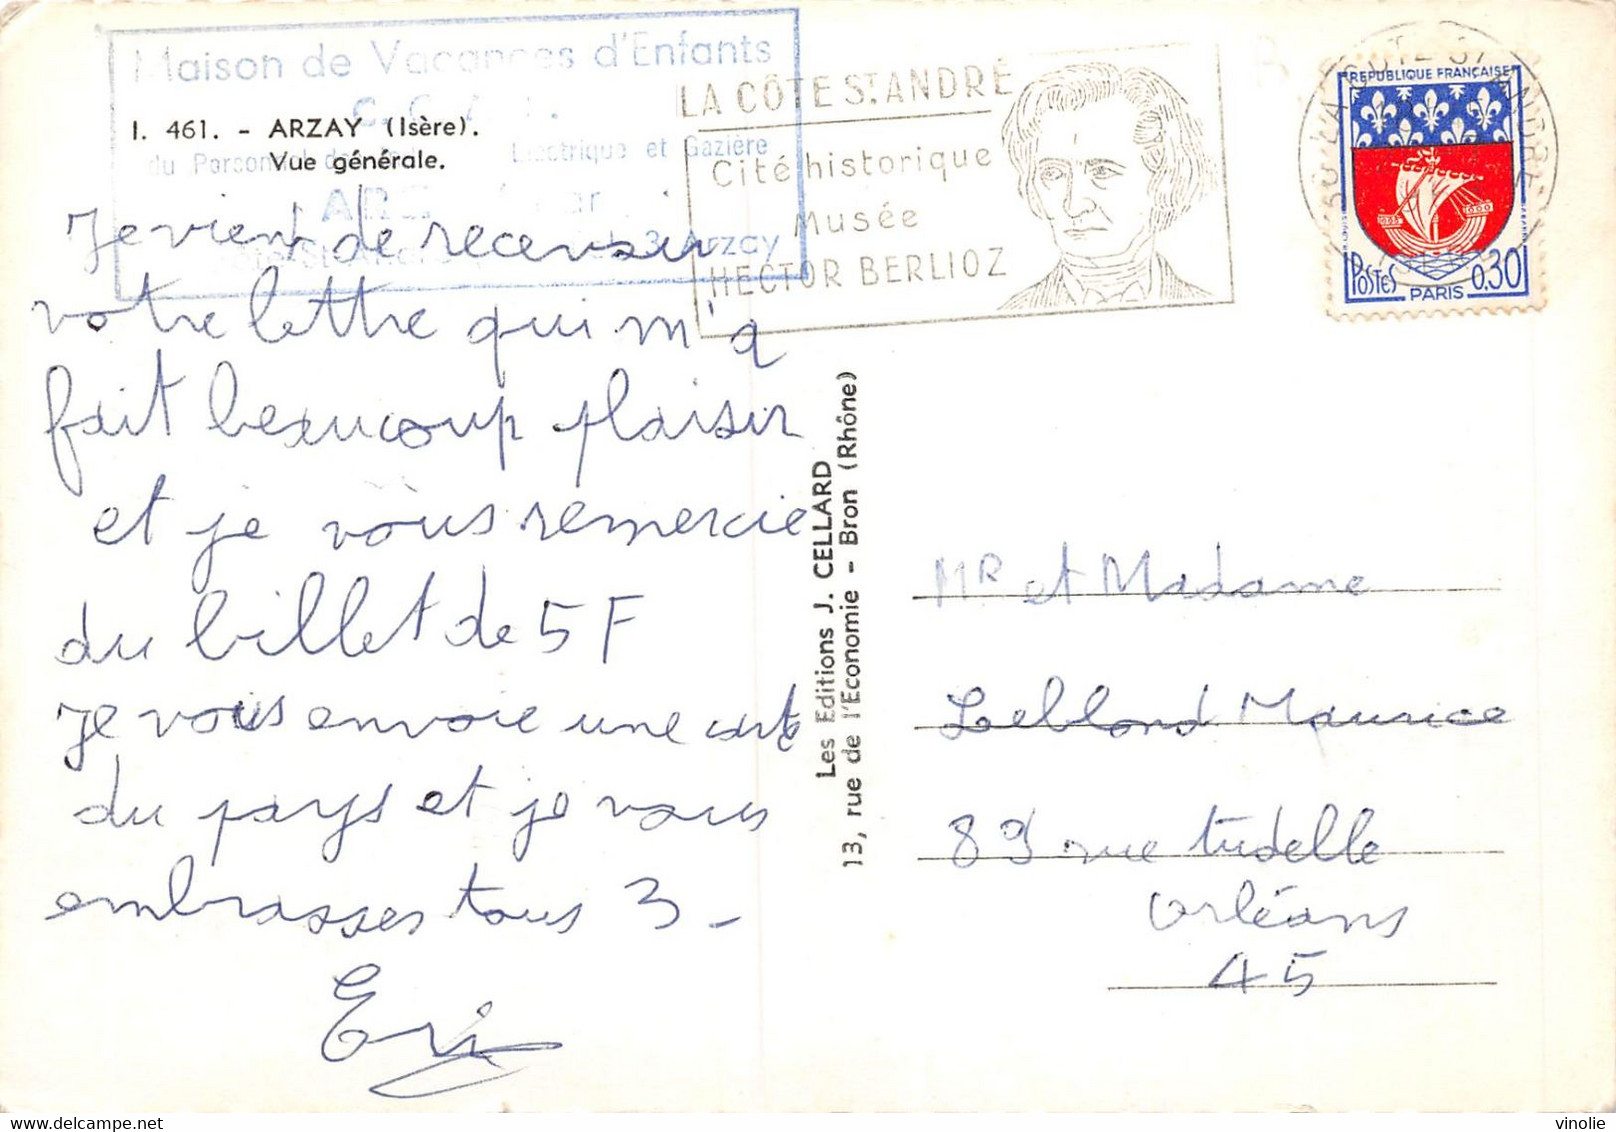 Maison de Vacances d'Enfants
I. 461. - ARZAY (Isère).
Vue générale.
du Personnel Electrique et Gazière
Arzay
LA CÔTE St. ANDRÉ
Cité historique
Musée
HECTOR BERLIOZ
REPUBLIQUE FRANÇAISE
POSTES 0,30
PARIS
Je vient de recevoir
votre lettre qui m'a
fait beaucoup plaisir
et je vous remercie
du billet de 5 F
Je vous envoie une carte
du pays et je vous
embrasses tous 3 -
Eri
Les Editions J. CELLARD
13, rue de l'Economie - Bron (Rhône)
Mr et Madame
Leblond Maurice
89 rue tudelle
Orléans
45
vinolie